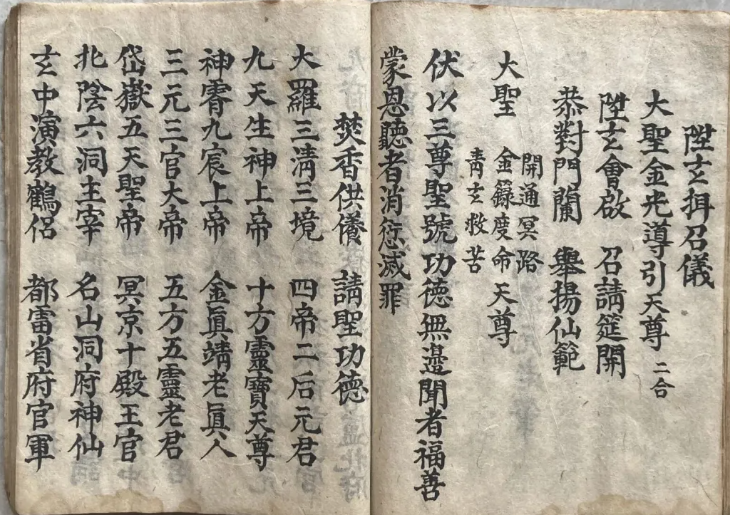 陞玄揖召儀
大聖金光導引天尊 二合
陞玄會啟 召請筵開
恭對門闌 舉揚仙範
大聖 開通冥路 金籙度命 青玄救苦 天尊
伏以三尊聖號功德無邊聞者福善
蒙恩聽者消愆滅罪
焚香供養 請聖功德
大羅三清三境 四帝二后元君
九天生神上帝 十方靈寶天尊
神霄九宸上帝 金眞靖老眞人
三元三官大帝 五方五靈老君
岱嶽五天聖帝 冥京十殿王官
北陰六洞主宰 名山洞府神仙
玄中演教鶴侶 都雷省府官軍